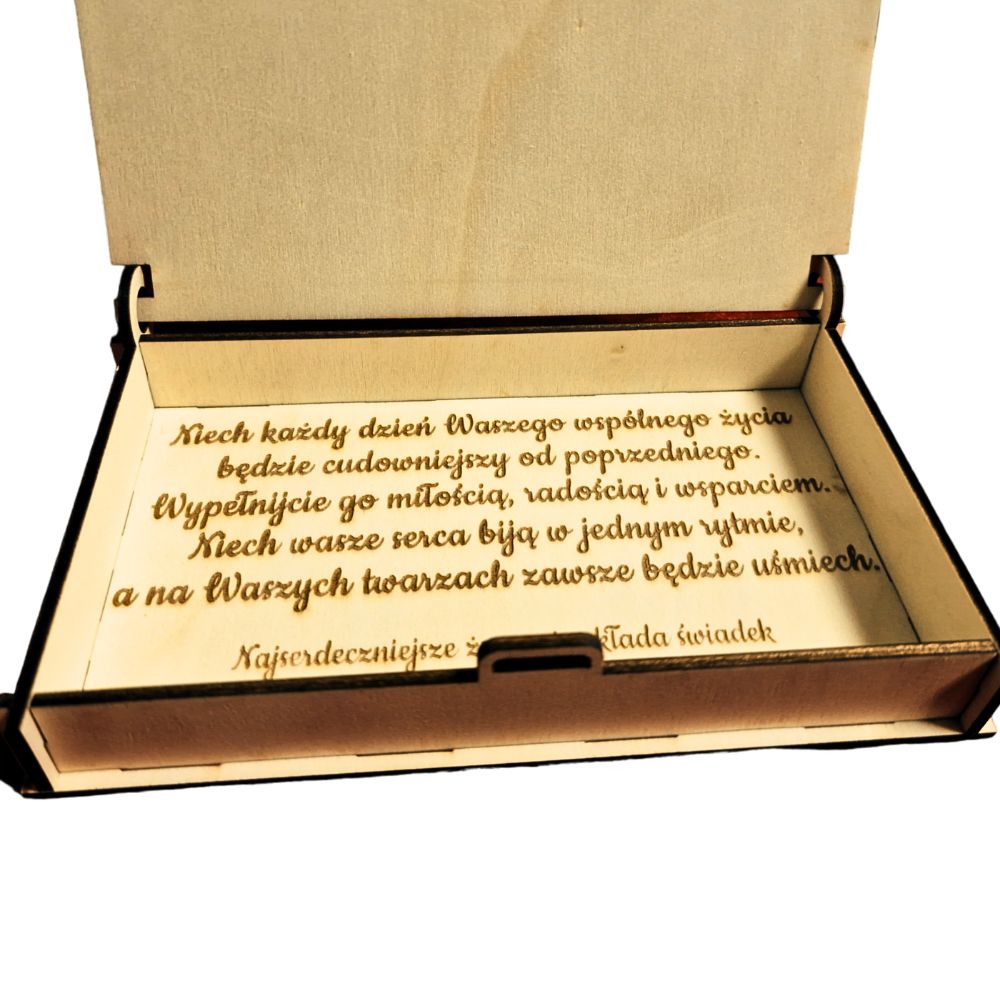 Niech każdy dzień Waszego wspólnego życia
będzie cudowniejszy od poprzedniego.
Wypełnijcie go miłością, radością i wsparciem.
Niech wasze serca biją w jednym rytmie,
a na Waszych twarzach zawsze będzie uśmiech.
Najserdeczniejsze świadek